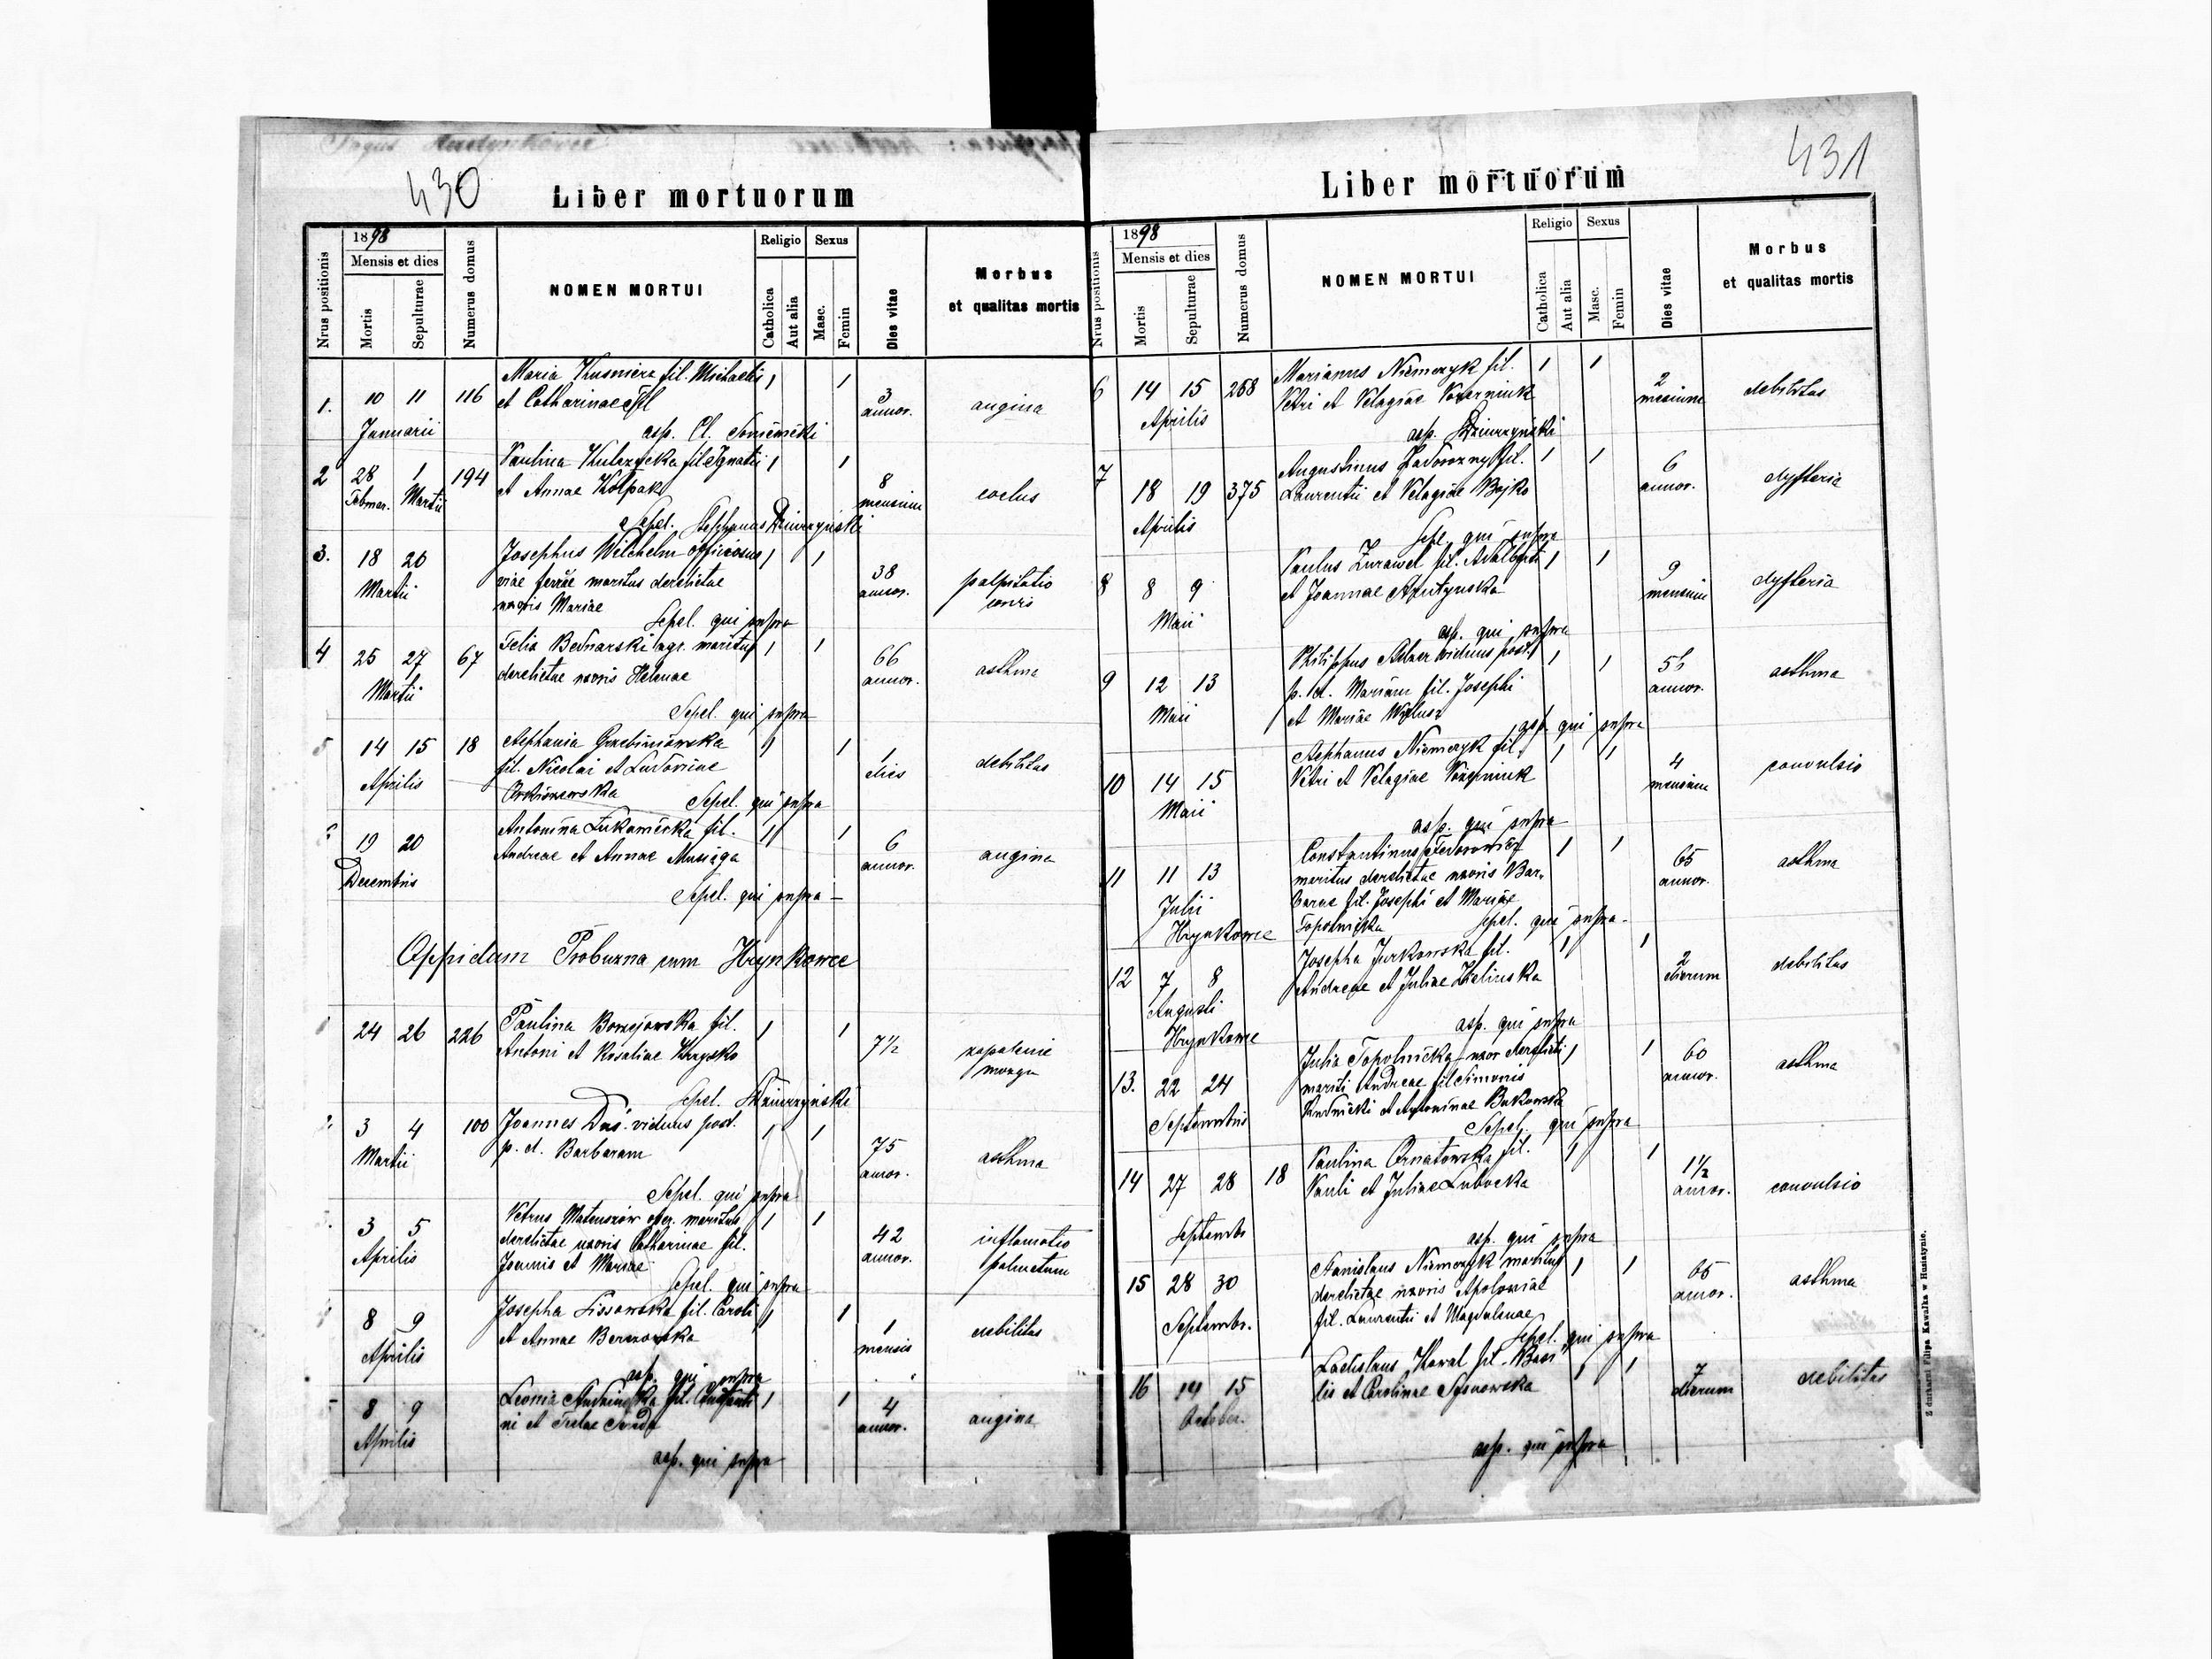 430
Liber mortuorum
Nrus positionis
1898
Mensis et dies
Mortis
Sepulturae
Numerus domus
NOMEN MORTUI
Religio
Catholica
Aut alia
Sexus
Masc.
Femin
Dies vitae
Morbus
et qualitas mortis
1. 10 11 116 Maria Kusnierz fil. Michaelis 1 1 3 annor. angina
Januarii et Catharinae
asp. Cl.
2 28 1 194 Paulina fil Ignatii 1 1 8 mensium
Februar. Martii et Annae Kołpak
Sepel. Stephanus Dziurzyński
3. 18 20 Josephus Wilchelm officiosus 1 1 38 annor. palpitatio
Martii viae ferrae maritus derelictae cordis
uxoris Mariae
Sepel. qui supra
4 25 27 67 Felix Bednarski agr. maritus 1 1 66 annor. asthma
Martii derelictae uxoris Helenae
Sepel. qui supra
5 14 15 18 Stephania Grzebiniowska 1 1 1 dies debilitas
Aprilis fil. Nicolai et Ludovicae
Sepel. qui supra
6 19 20 Antonina Łukawiecka fil. 1 1 6 annor. angina
Decembris Andreae et Annae Musiąga
Sepel. qui supra —
Oppidum Probuzna cum Hrynkowce
1 24 26 226 Paulina fil. 1 1 7½ zapalenie
Antoni et Rosaliae mozgu
Sepel. Dziurzyński
2. 3 4 100 Joannes Duś. viduus post. 1 1 75 annor. asthma
Martii p. d. Barbaram
Sepel. qui supra
3. 3 5 Petrus Mateuszów maritus 1 1 42 annor. inflamatio
Aprilis derelictae uxoris Catharinae fil.
Joannis et Mariae
Sepel. qui supra
8 9 Josepha Lissowska fil. Caroli 1 1 1 mensis debilitas
Aprilis et Annae
asp. qui supra
8 9 Leonia fil. 1 1 4 annor. angina
Aprilis ni et
asp. qui supra
431
Liber mortuorum
Nrus positionis
1898
Mensis et dies
Mortis
Sepulturae
Numerus domus
NOMEN MORTUI
Religio
Catholica
Aut alia
Sexus
Masc.
Femin
Dies vitae
Morbus
et qualitas mortis
6 14 15 268 Marianus Niemczyk fil. 1 1 2 mensium debilitas
Aprilis Petri et Pelagiae
asp. Dziurzyński
7 18 19 375 Augustinus Zadorozny fil. 1 1 6 annor. dyfteria
Aprilis Laurentii et Pelagiae Bojko
Sepe. qui supra
8 8 9 Paulus Żurawel fil. Adalberti 1 1 9 mensium dyfteria
Maii et Joannae
asp. qui supra
9 12 13 Philippus viduus post. 1 1 annor. asthma
Maii p. d. Mariam fil. Josephi
et Mariae
asp. qui supra
10 14 15 Stephanus Niemczyk fil. 1 1 4 mensium convulsio
Maii Petri et Pelagiae
asp. qui supra
11 11 13 Constantinus Fedorowicz 1 1 65 annor. asthma
Julii maritus derelictae uxoris Bar-
Hrynkowce barae fil. Josephi et Mariae
Topolnicka sepel. qui supra -
12 7 8 Josepha Jurkowska fil. 1 1 2 dierum debilitas
Augusti Andreae et Juliae Zielinska
Hrynkowce
asp. qui supra
13. 22 24 Julia Topolnicka uxor derelicti 1 1 60 annor. asthma
Septembris mariti Andreae fil Simonis
Rudnicki et Antoninae Bukowska
Sepel. qui supra
14 27 28 18 Paulina Ornatowska fil. 1 1 1½ annor. convulsio
Septembr Pauli et Juliae Lubocka
asp. qui supra
15 28 30 Stanislaus Niemczyk maritus 1 1 65 annor. asthma
Septembr. derelictae uxoris Apoloniae
fil. Laurentii et Magdalenae
Sepel. qui supra
16 14 15 Ladislaus Kowal fil. Basi 1 1 7 dierum debilitas
October. lii et Carolinae
asp. qui supra
Z drukarni Filipa Kawałka w Husiatynie.